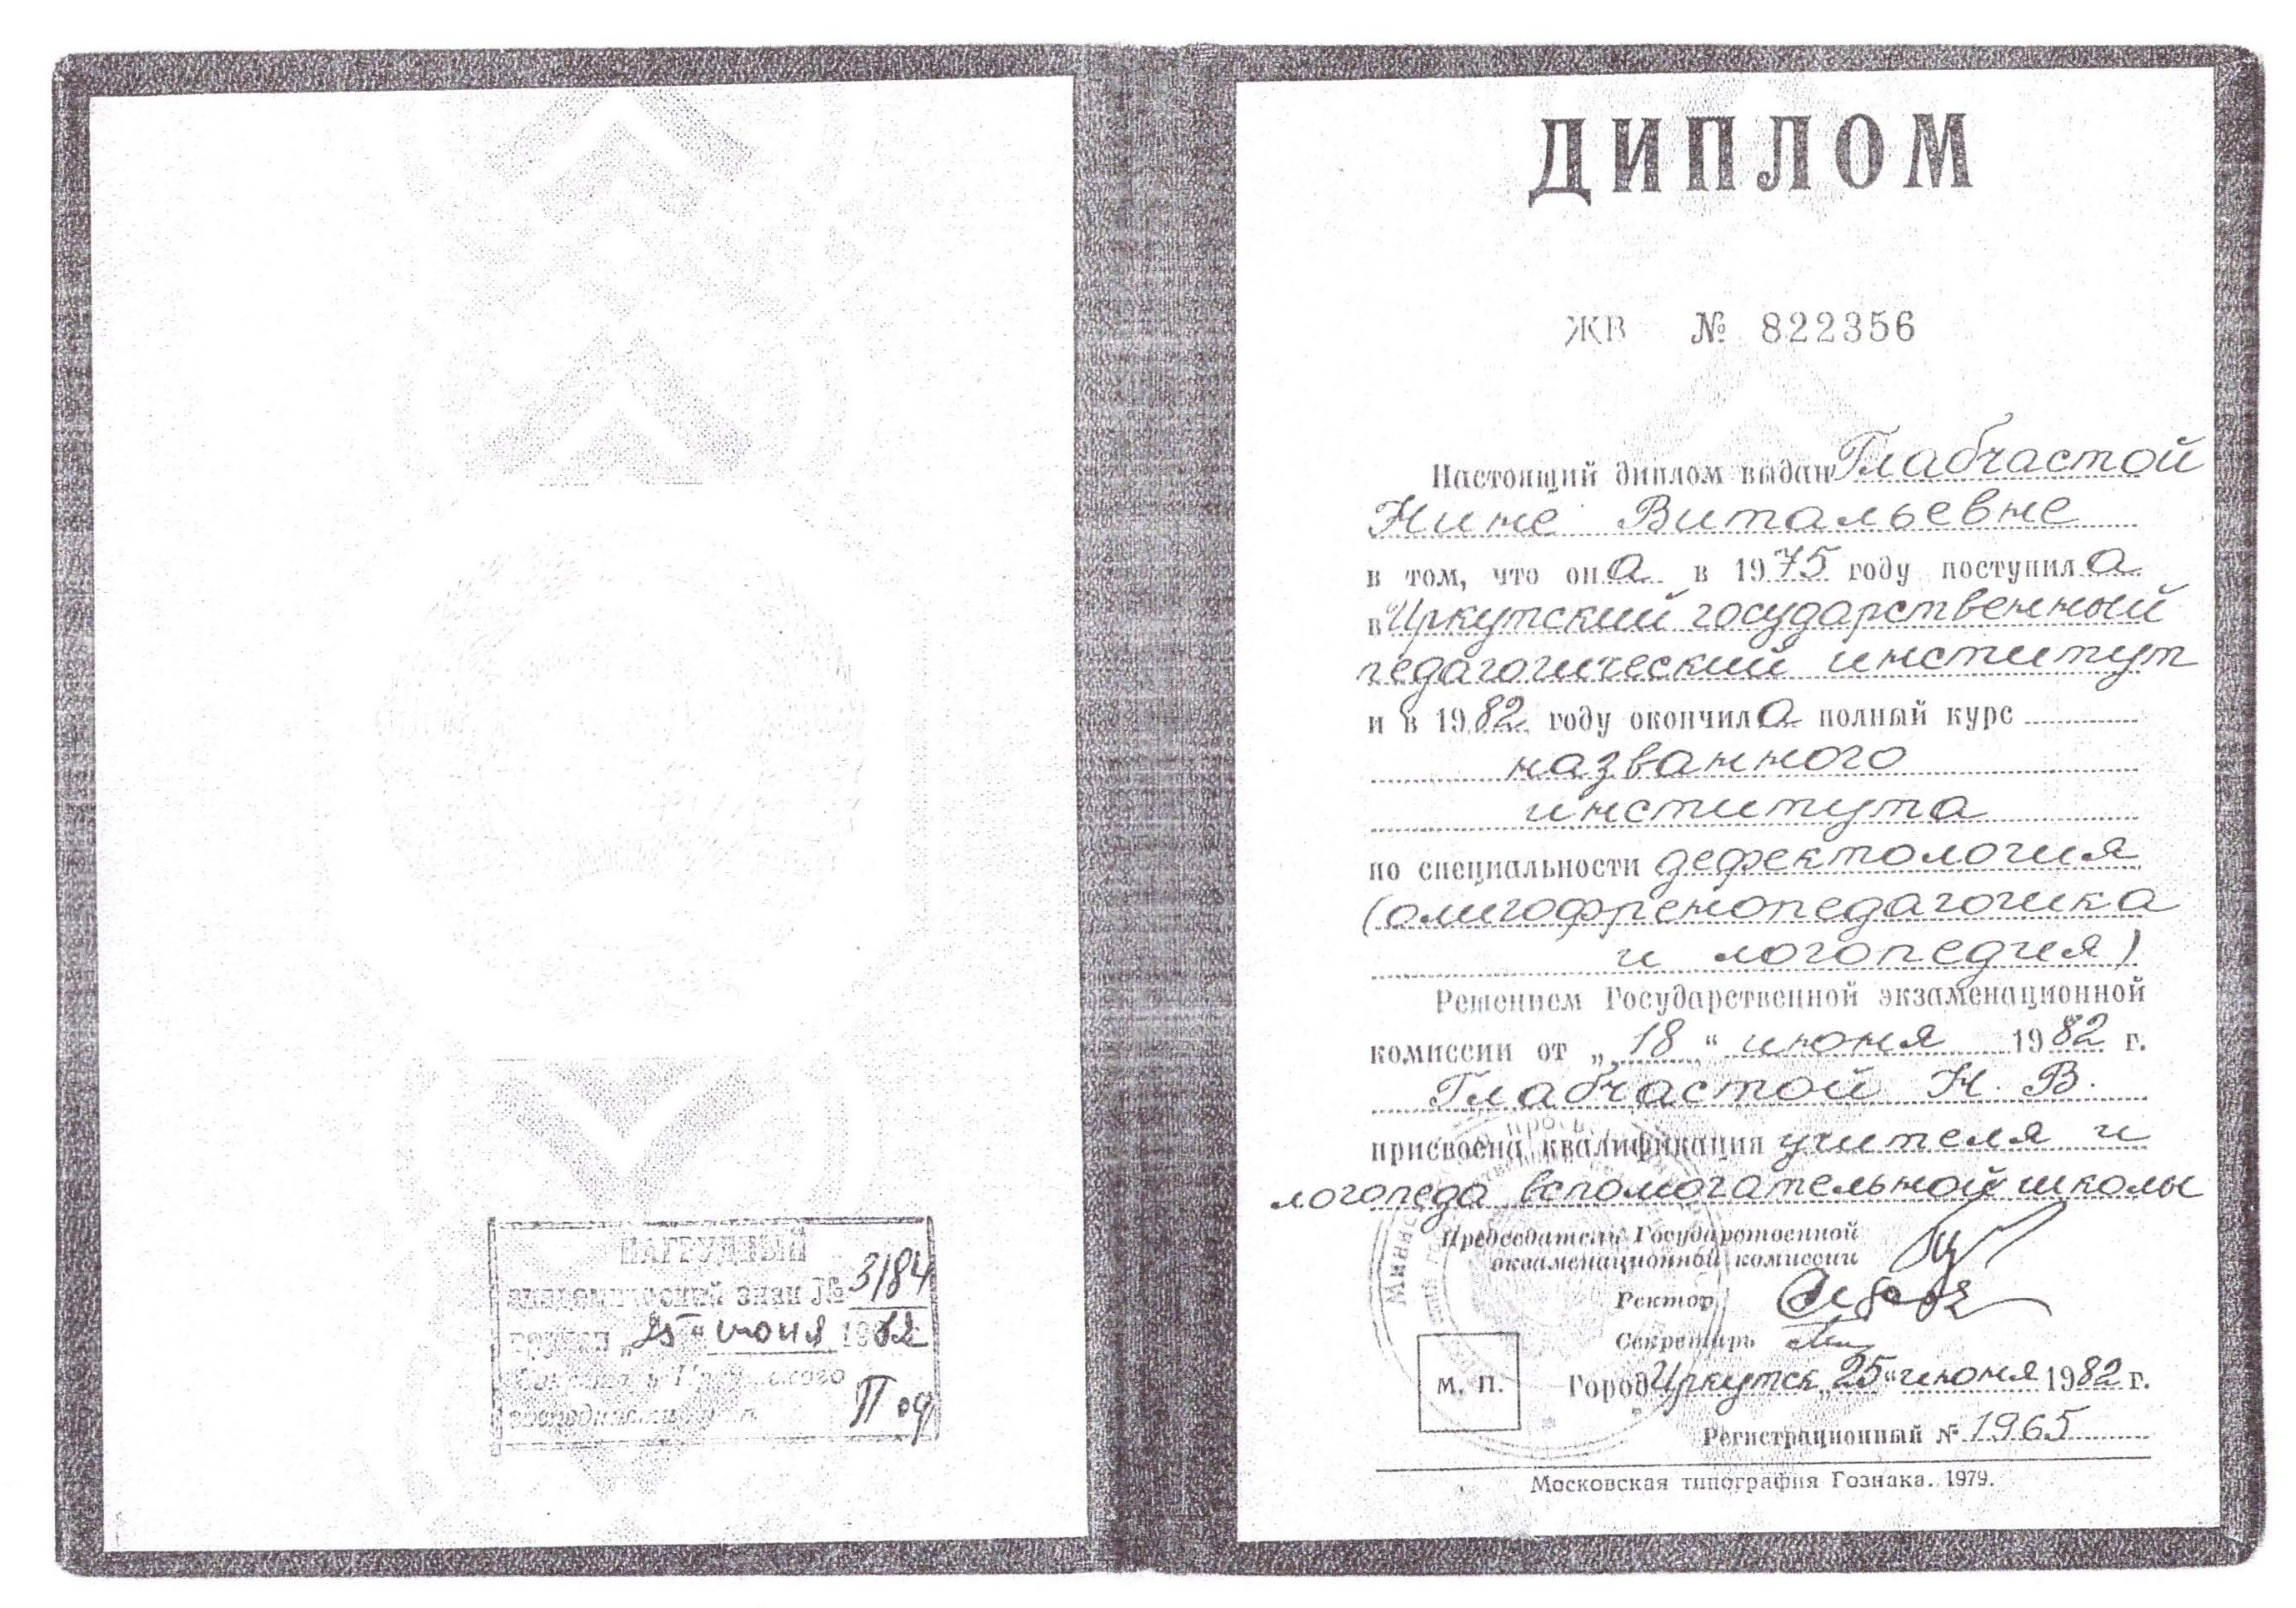 НАГРУДНЫЙ
академический знак № 3184
вручен „25“ июня 1982
Под
ДИПЛОМ
ЖВ № 822356
Настоящий диплом выдан Глабчастой
Нине Витальевне
в том, что она в 1975 году поступила
в Иркутский государственный
педагогический институт
и в 1982 году окончила полный курс
названного
института
по специальности дефектология
(олигофренопедагогика
и логопедия)
Решением Государственной экзаменационной
комиссии от „18“ июня 1982 г.
Глабчастой Н. В.
присвоена квалификация учителя и
логопеда вспомогательной школы
Председатель Государственной
экзаменационной комиссии
Ректор
Секретарь
М. П.
Город Иркутск „25“ июня 1982 г.
Регистрационный № 1965
Московская типография Гознака. 1979.